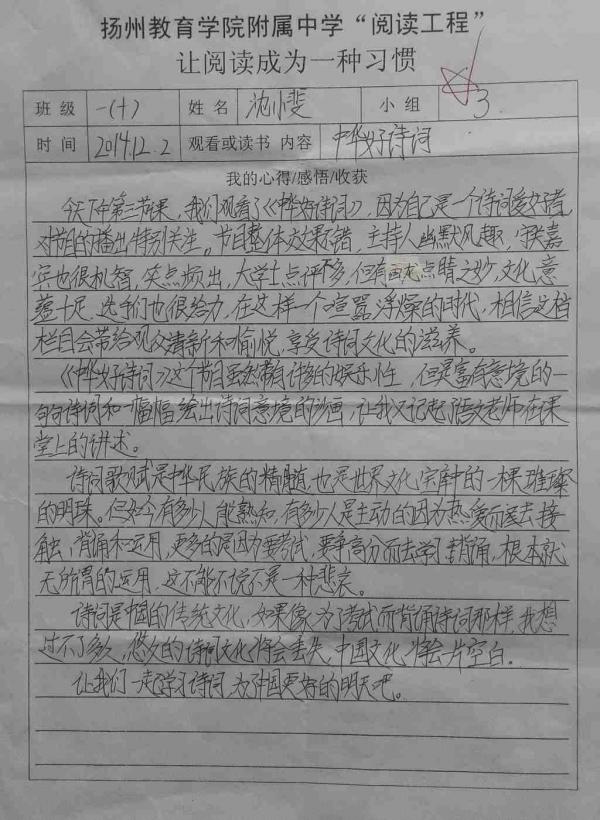 扬州教育学院附属中学“阅读工程”
让阅读成为一种习惯
班 级 一(十) 姓 名 沈小斐 小 组 3
时 间 2014.12.2 观看或读书 内容 中华好诗词
我的心得/感悟/收获
今天下午第三节课，我们观看了《中华好诗词》，因为自己是一个诗词爱好者，
对节目的播出特别关注。节目整体效果不错，主持人幽默风趣，守关嘉
宾也很机智，笑点频出，大学士点评不多，但有画龙点睛之妙，文化意
蕴十足，选手们也很给力，在这样一个喧嚣浮燥的时代，相信这档
栏目会带给观众清新和愉悦，享受诗词文化的滋养。
《中华好诗词》这个节目虽然带有许多的娱乐性，但是富有意境的一
句句诗词和一幅幅绘出诗词意境的沙画，让我又记起了语文老师在课
堂上的讲述。
诗词歌赋是中华民族的精髓，也是世界文化宝库中的一棵璀璨
的明珠。但如今有多少人能熟知，有多少人是主动的因为热爱而去接
触，背诵和运用，更多的是因为要考试，要争高分而去学习背诵，根本就
无所谓的运用，这不能不说不是一种悲哀。
诗词是中国的传统文化，如果像为了考试而背诵诗词那样，我想
过不了多久，悠久的诗词文化将会丢失，中国文化将会一片空白。
让我们一起学习诗词，为中国更好的明天吧。